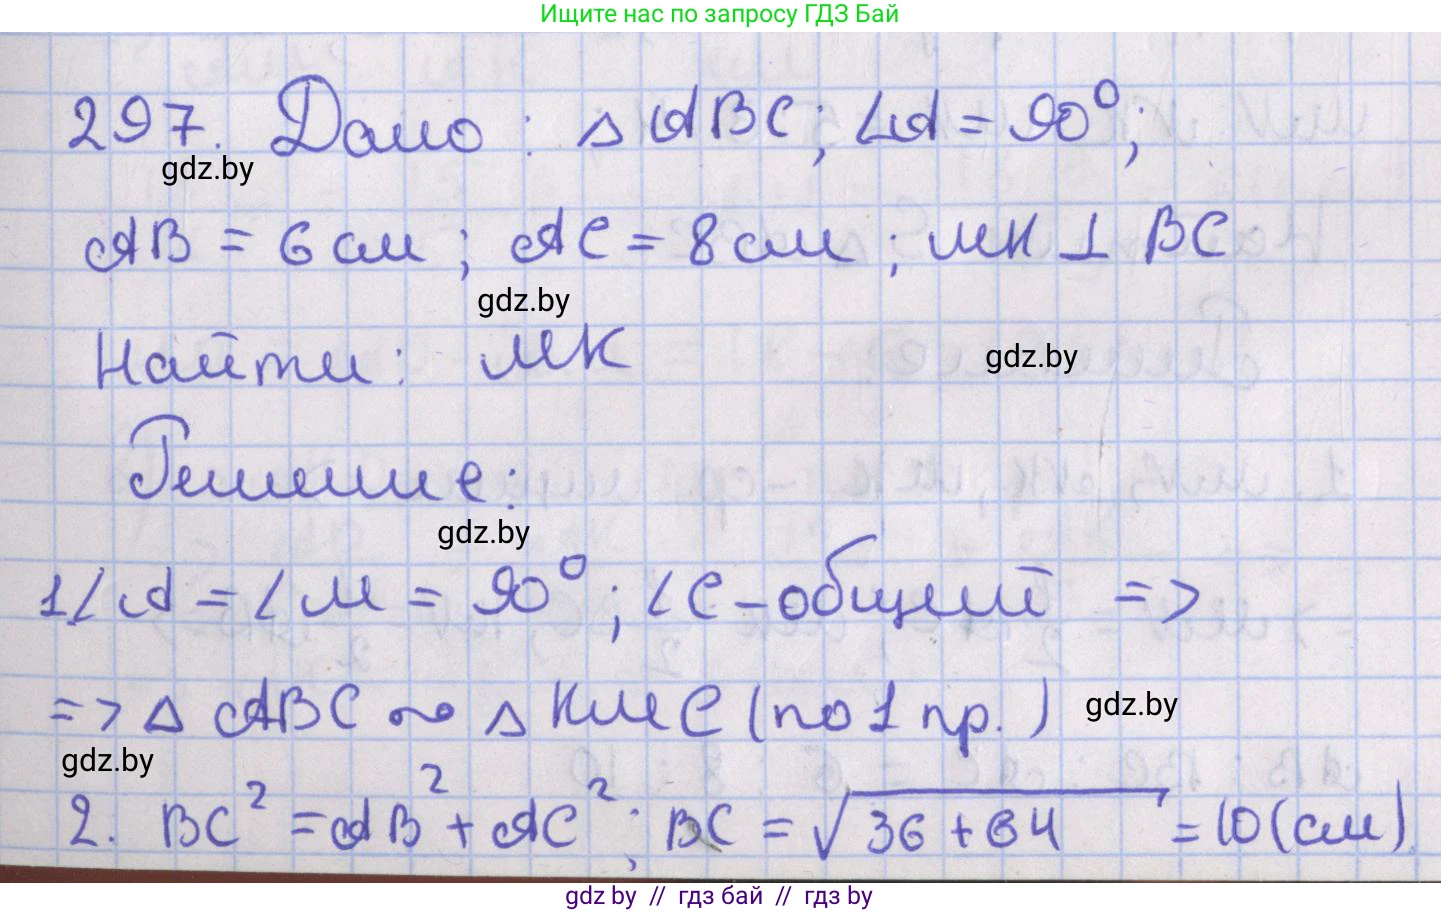 Ищите нас по запросу ГДЗ Бай
297. Дано: △ABC; ∠A = 90°;
gdz.by
AB = 6 см; AC = 8 см; МК ⊥ BC
gdz.by
Найти: МК
gdz.by
Решение:
gdz.by
1∠A = ∠М = 90°; ∠C - общий =>
=> △ ABC ∾ △ КМC (по 1 пр.)
gdz.by
gdz.by
2. BC² = AB² + AC²; BC = √36 + 64 = 10 (см)
gdz.by // гдз бай // гдз by